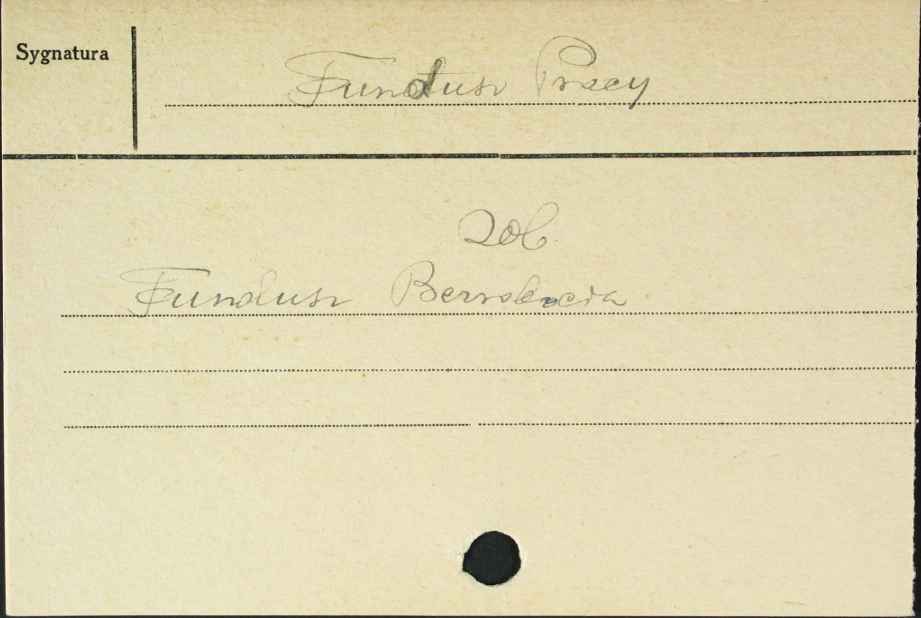 Sygnatura
Fundusz Pracy
zob.
Fundusz Bezrobocia